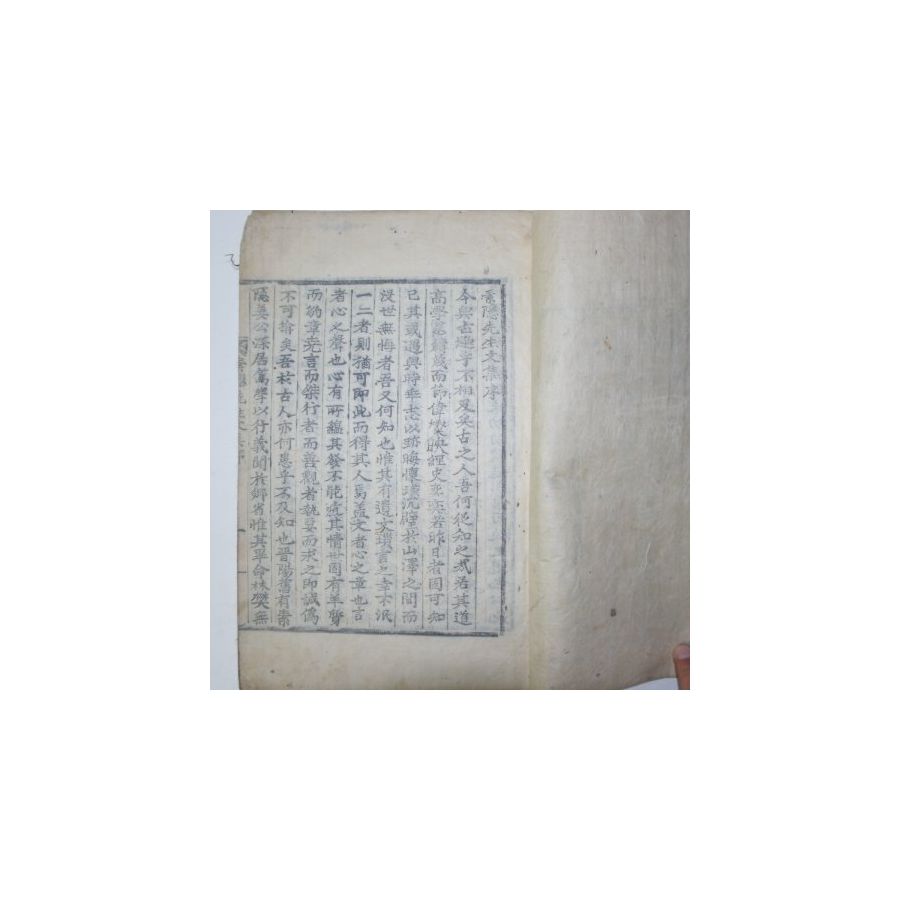 素隱先生文集序
今與古邈乎不相及矣古之人吾何從知之哉若其道
高學邃績茂而節偉榮映經史赫若昨日者固可知
已其或遇與時乖志以跡晦懷瓌沉隱於山澤之間而
沒世無悔者吾又何知也惟其有遺文瓌言之幸不泯
一二者則猶可即此而得其人焉盖文者心之章也言
者心之聲也心有所蘊其發不能遁其情世固有羊質
而豹章堯言而桀行者而善觀者執要而求之即誠僞
不可掩矣吾於古人亦何患乎不及知也晋陽舊有素
隱公深居篤學以行義聞於鄕省惟其卑命扶樊無